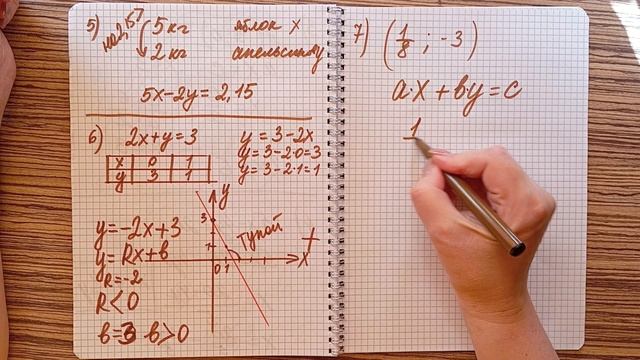 5) на 2,15 5 кг яблок x
2 кг апельсину
5x-2y=2,15
6) 2x+y=3
x 0 1
y 3 1
y=3-2x
y=3-2·0=3
y=3-2·1=1
y
3
1
тупой
0 1
x
y=-2x+3
y=kx+b
k=-2
k<0
b=3 b>0
7) (1/8 ; -3)
a·x+by=c
1